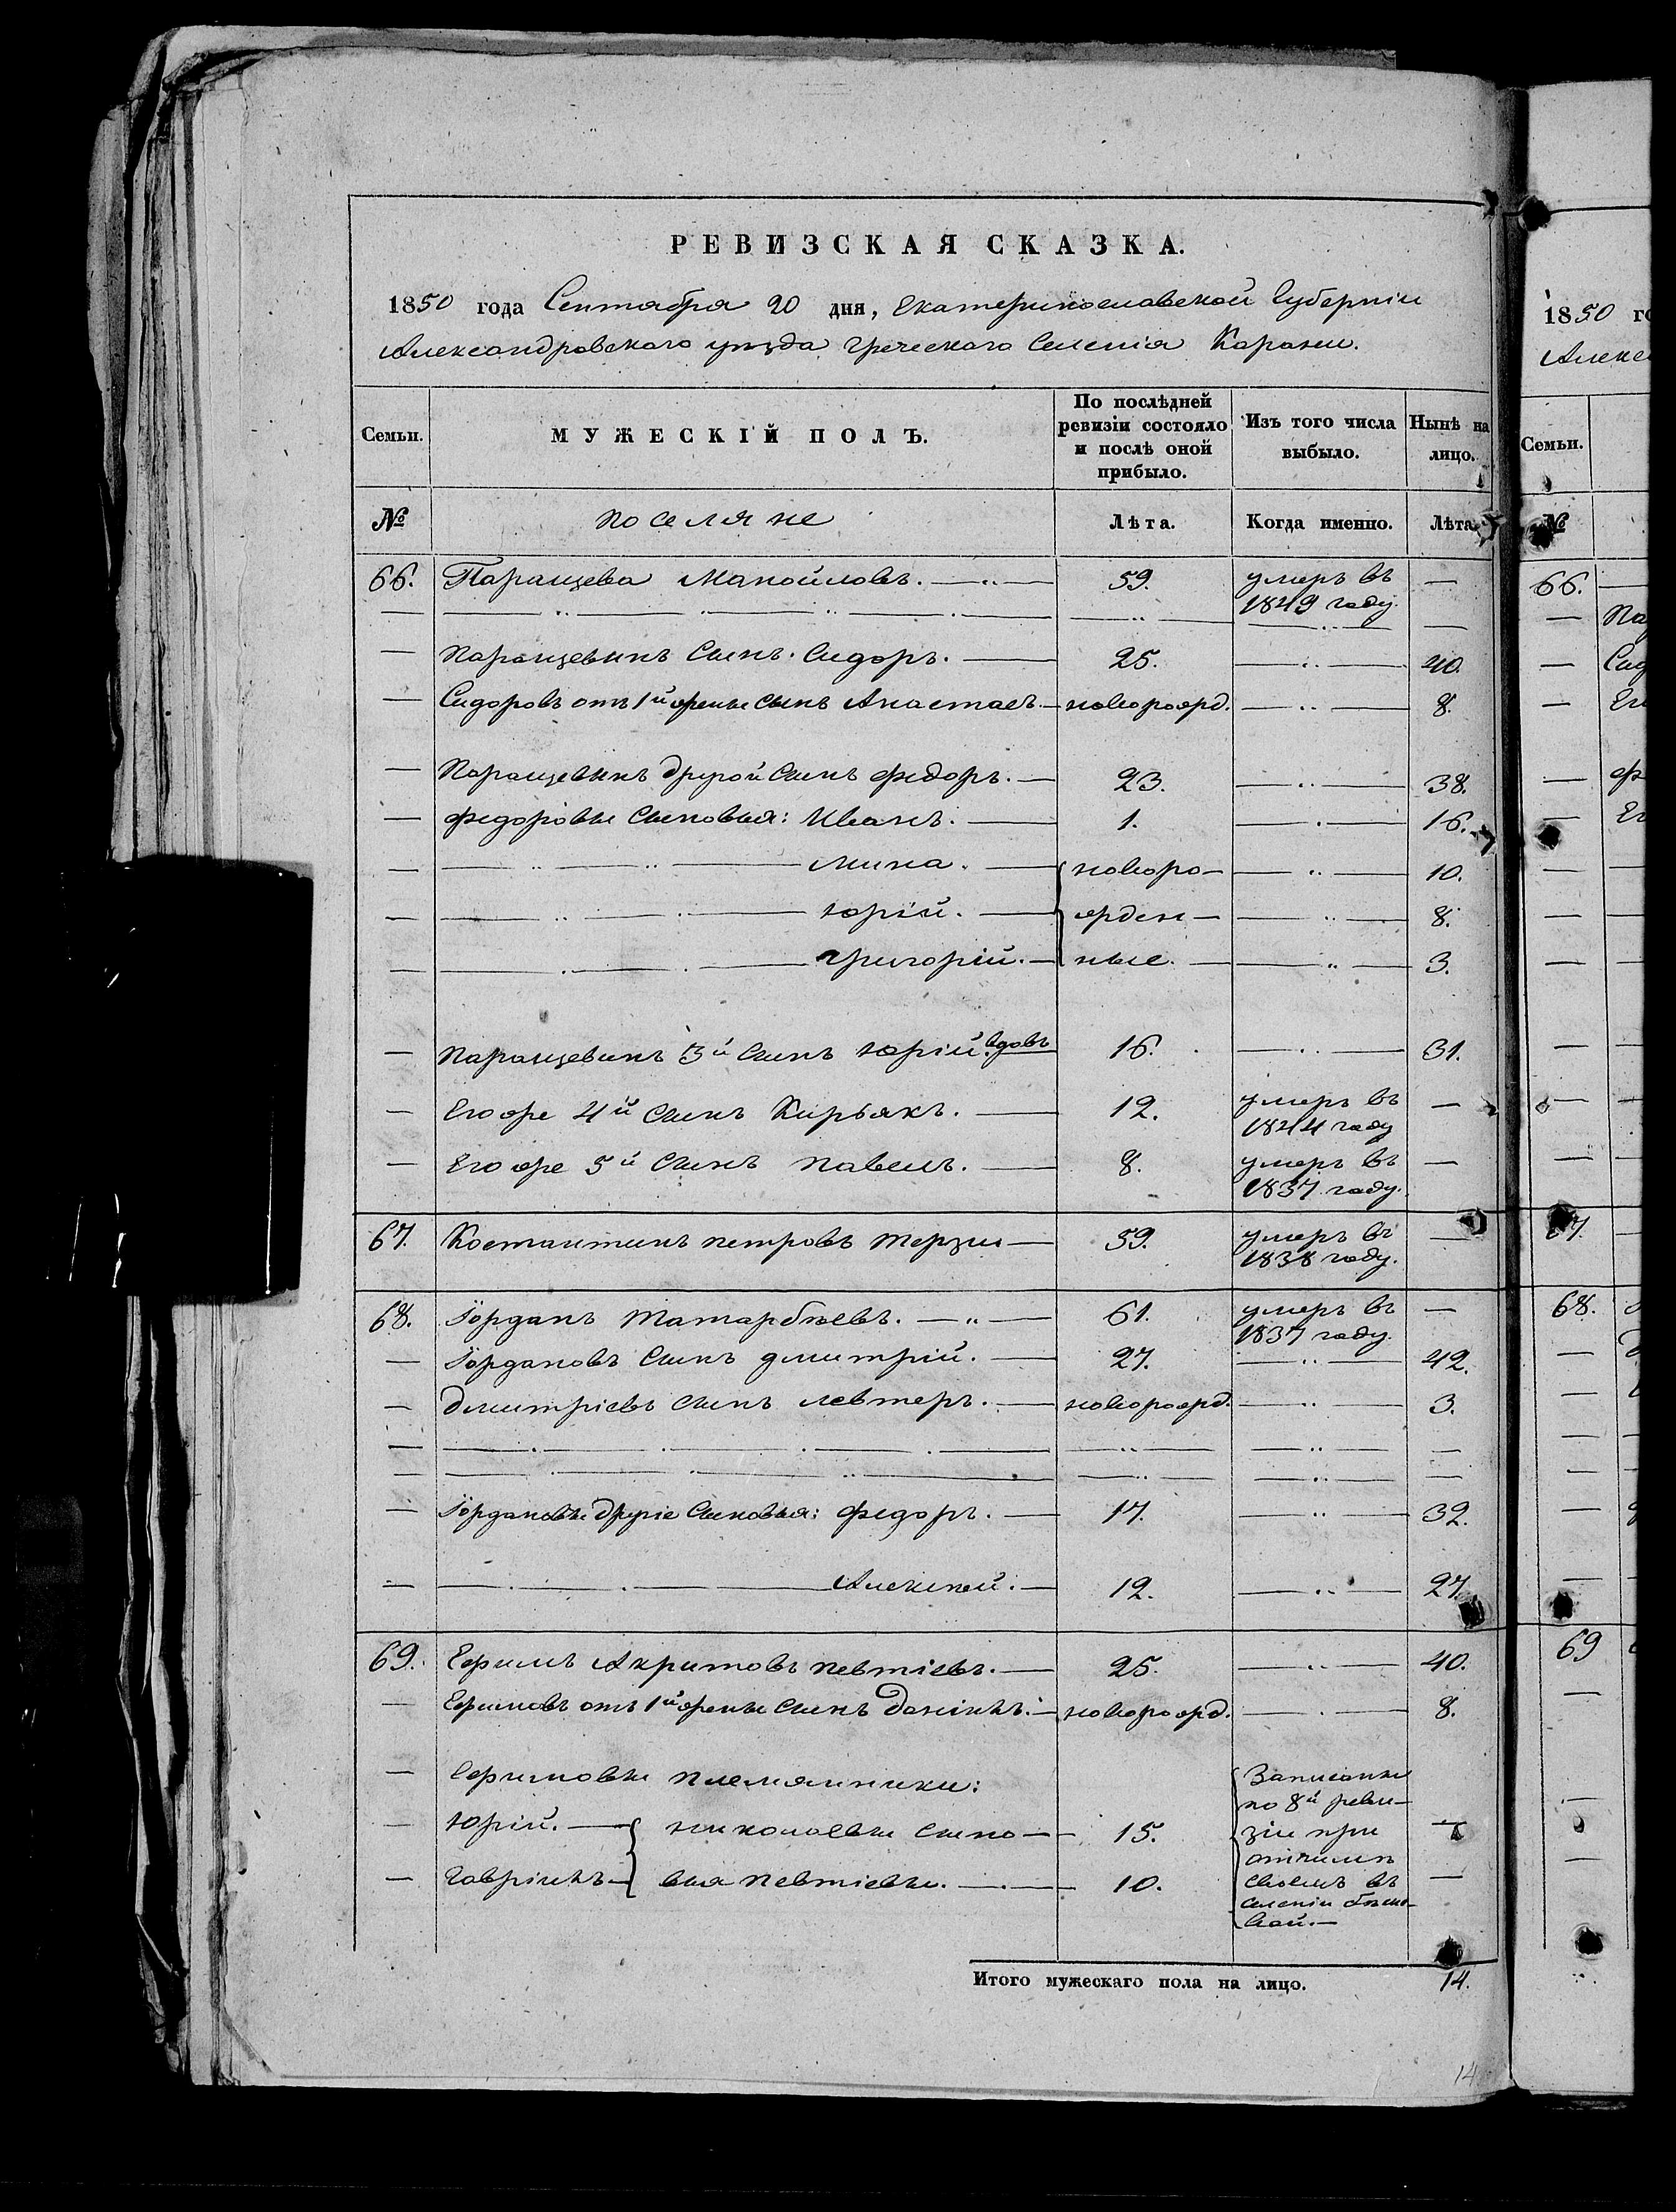 РЕВИЗСКАЯ СКАЗКА.
1850 года Сентября 20 дня, Екатеринославской Губерніи
Александровскаго уѣзда греческаго Селенія Карани.
Семьи. МУЖЕСКІЙ ПОЛЪ. По послѣдней ревизіи состояло и послѣ оной прибыло. Изъ того числа выбыло. Нынѣ на лицо.
№ поселяне Лѣта. Когда именно. Лѣта.
66. Паращева Манойловъ. 59. умеръ въ 1849 году. —
— Паращевинъ Сынъ Сидоръ. 25. — 40.
— Сидоровъ отъ 1й жены сынъ Анастасъ. новорожд. — 8.
— Паращевинъ другой Сынъ Федоръ. 23. — 38.
— Федоровы Сыновья: Иванъ. 1. — 16.
— Мина. новоро- — 10.
— Юрій. жден- — 8.
— Григорій. ные. — 3.
— Паращевинъ 3й Сынъ Юрій вдовъ 16. — 31.
— Его же 4й Сынъ Кирьякъ. 12. умеръ въ 1844 году —
— Его же 5й Сынъ Павелъ. 8. умеръ въ 1837 году. —
67. Костантинъ Петровъ Терзи 59. умеръ въ 1838 году. —
68. Іорданъ Татарбѣевъ. 61. умеръ въ 1837 году. —
— Іордановъ Сынъ Дмитрій. 27. — 42.
— Дмитріевъ Сынъ Левтеръ. новорожд. — 3.
— Іордановы другіе Сыновья: Федоръ. 17. — 32.
— Алексѣй. 12. — 27.
69. Ефимъ Акритовъ Певтіевъ. 25. — 40.
— Ефимовъ отъ 1й жены Сынъ Даніилъ. новорожд. — 8.
— Ефимовы племянники:
— Юрій. Николаевы Сыно- 15. —
— Гавріилъ вья Певтіевы. 10. —
Записаны
по 8й реви-
зіи при
своемъ въ
селеніи
Итого мужескаго пола на лицо. 14.
14
1850 го
Алекс
Семьи.
№
66.
Па
Сид
Ег
Фе
Ег
67.
68.
69